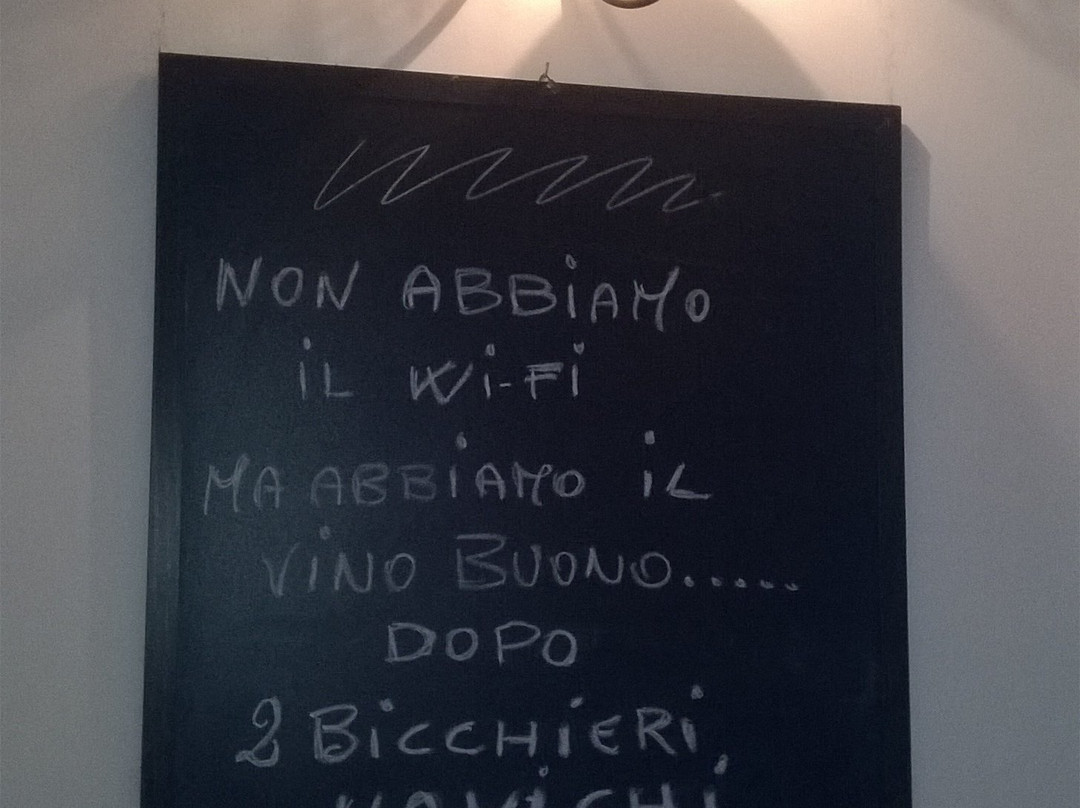 NON ABBiAMO
iL Wi-Fi
MA ABBiAMO iL
ViNO BUONO.....
DOPO
2 BiCCHiERi